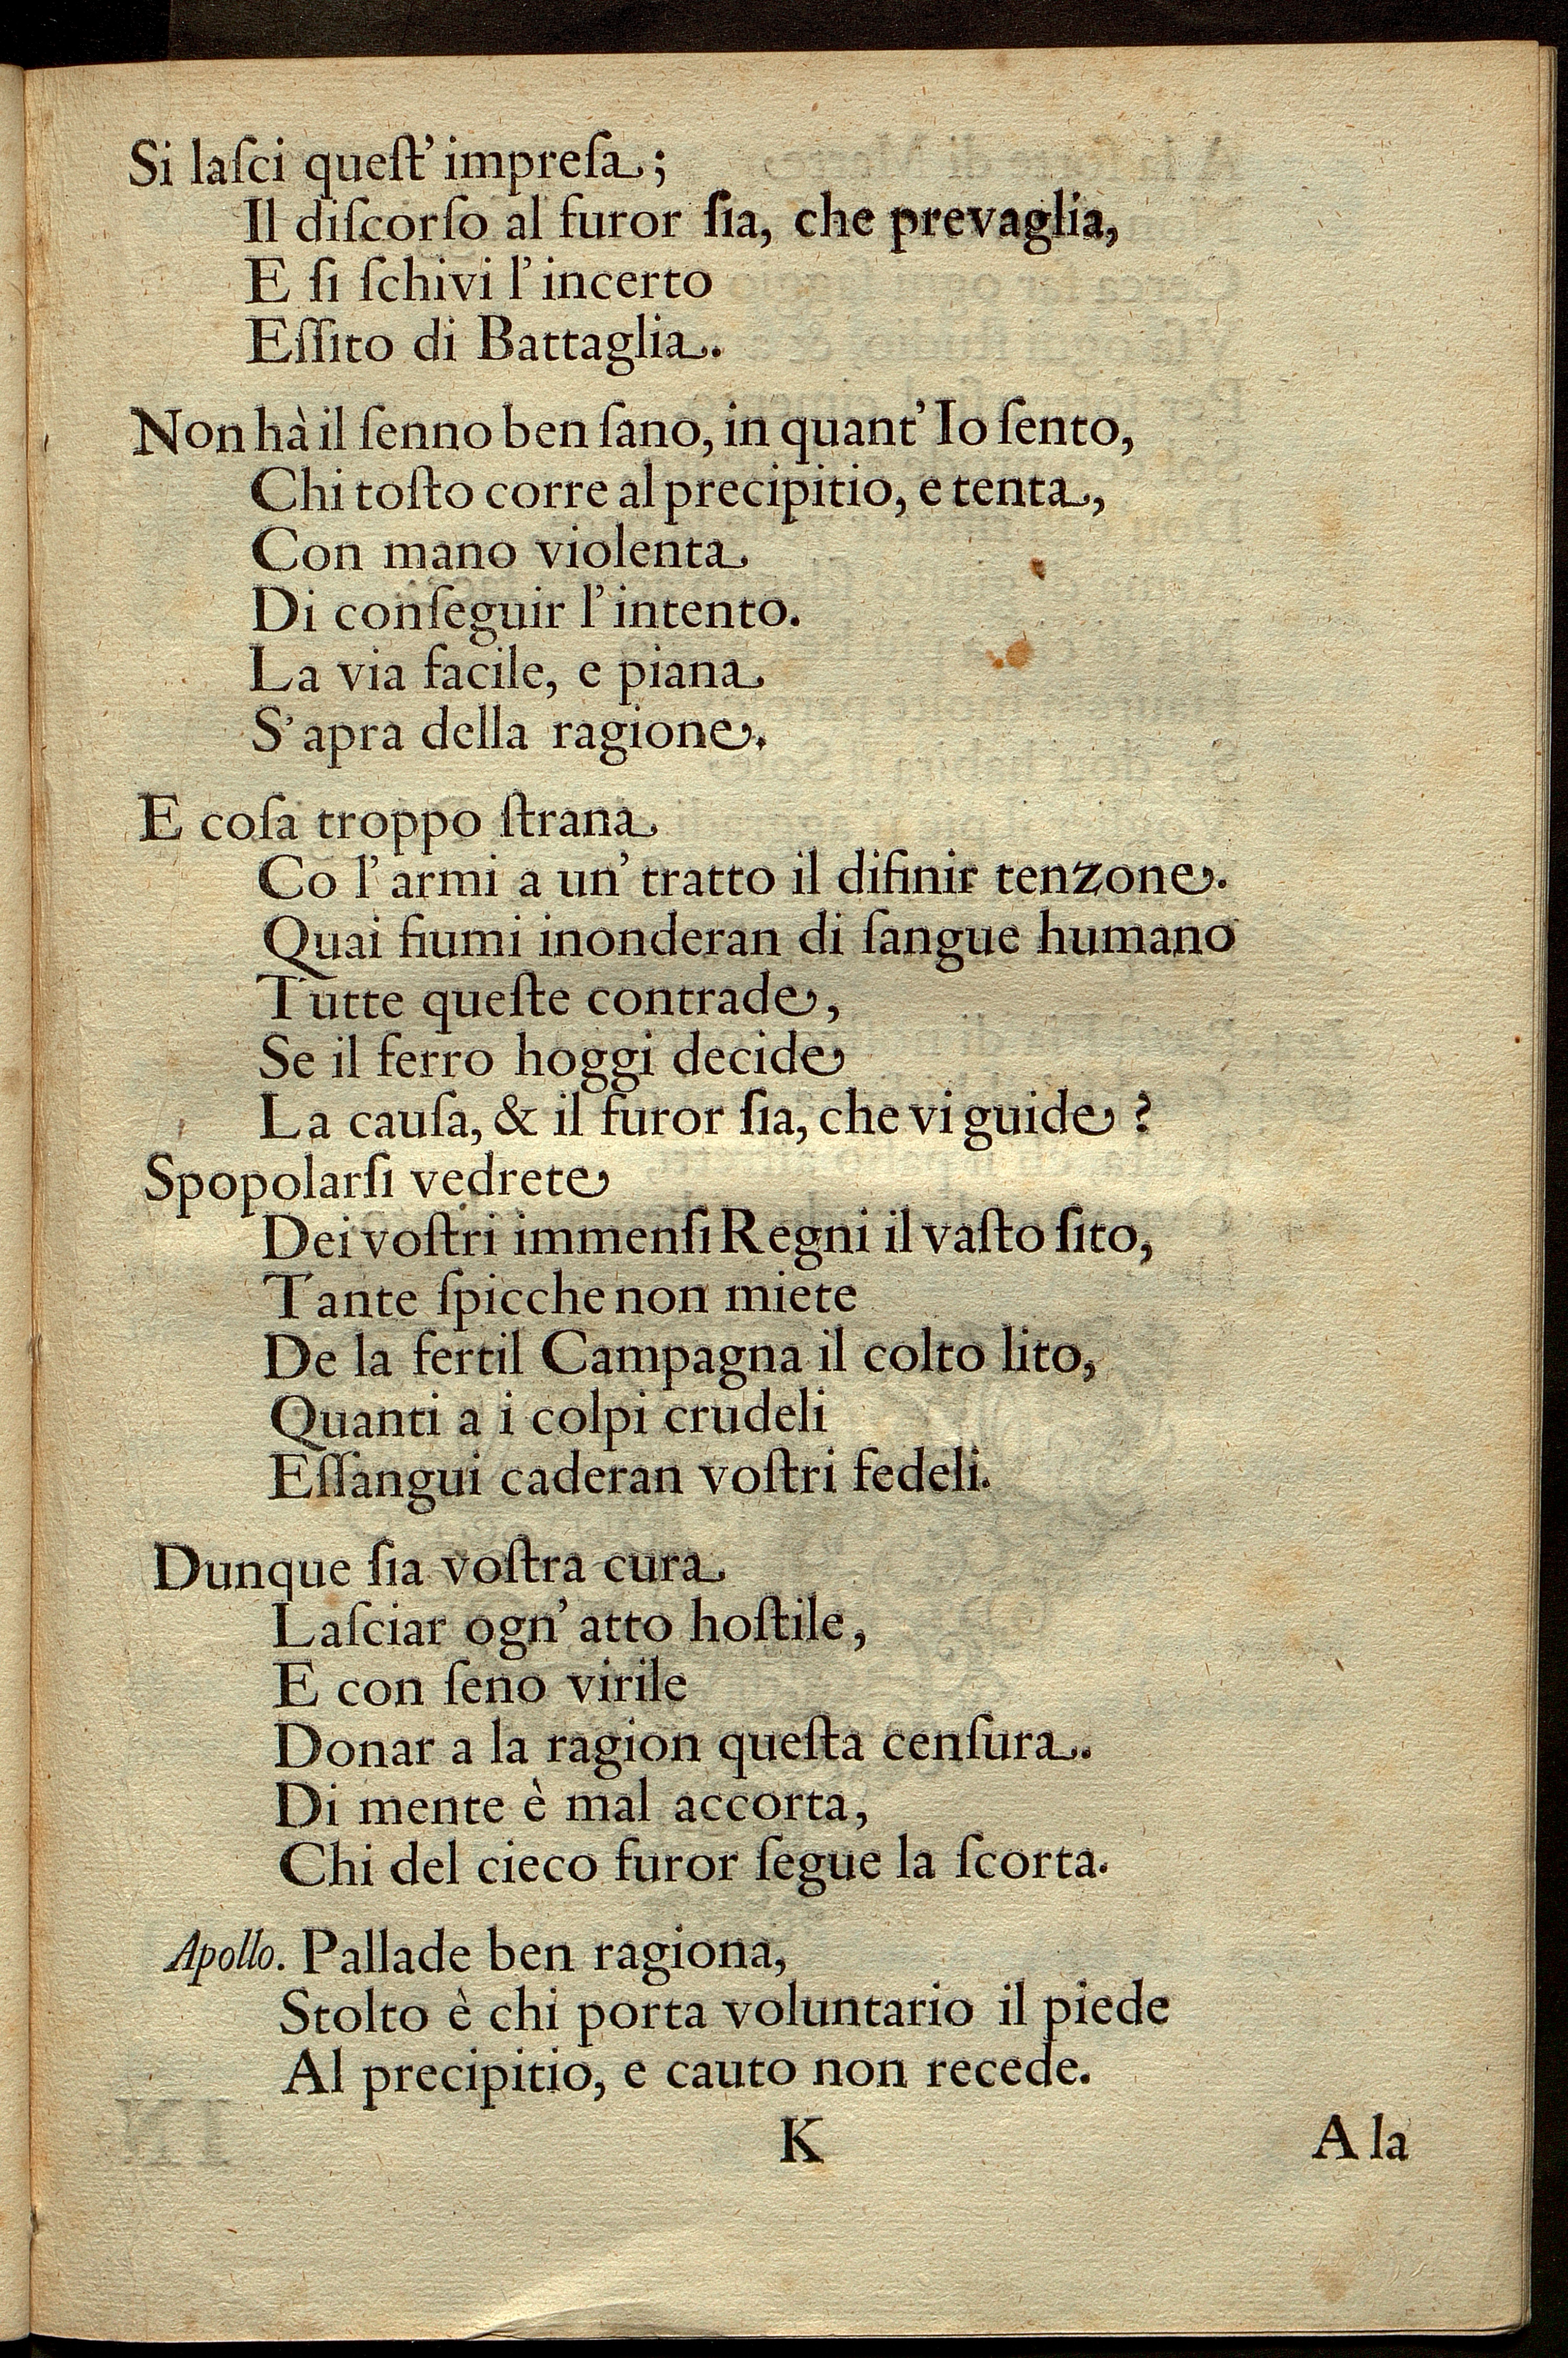 Si laſci queſt' impreſa;
Il diſcorſo al furor ſia, che prevaglia,
E ſi ſchivi l' incerto
Eſſito di Battaglia.
Non hà il ſenno ben ſano, in quant' Io ſento,
Chi toſto corre al precipitio, e tenta,
Con mano violenta
Di conſeguir l' intento.
La via facile, e piana
S' apra della ragione.
E coſa troppo ſtrana
Co l' armi a un' tratto il difinir tenzone.
Quai fiumi inonderan di ſangue humano
Tutte queſte contrade,
Se il ferro hoggi decide
La cauſa, & il furor ſia, che vi guide?
Spopolarſi vedrete
Dei voſtri immenſi Regni il vaſto ſito,
Tante ſpicche non miete
De la fertil Campagna il colto lito,
Quanti a i colpi crudeli
Eſſangui caderan voſtri fedeli.
Dunque ſia voſtra cura
Laſciar ogn' atto hoſtile,
E con ſeno virile
Donar a la ragion queſta cenſura.
Di mente è mal accorta,
Chi del cieco furor ſegue la ſcorta.
Apollo. Pallade ben ragiona,
Stolto è chi porta voluntario il piede
Al precipitio, e cauto non recede.
K A la